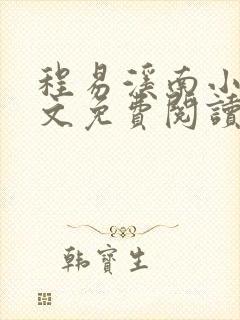 程易溪南小
文免費閱讀
韩寶生